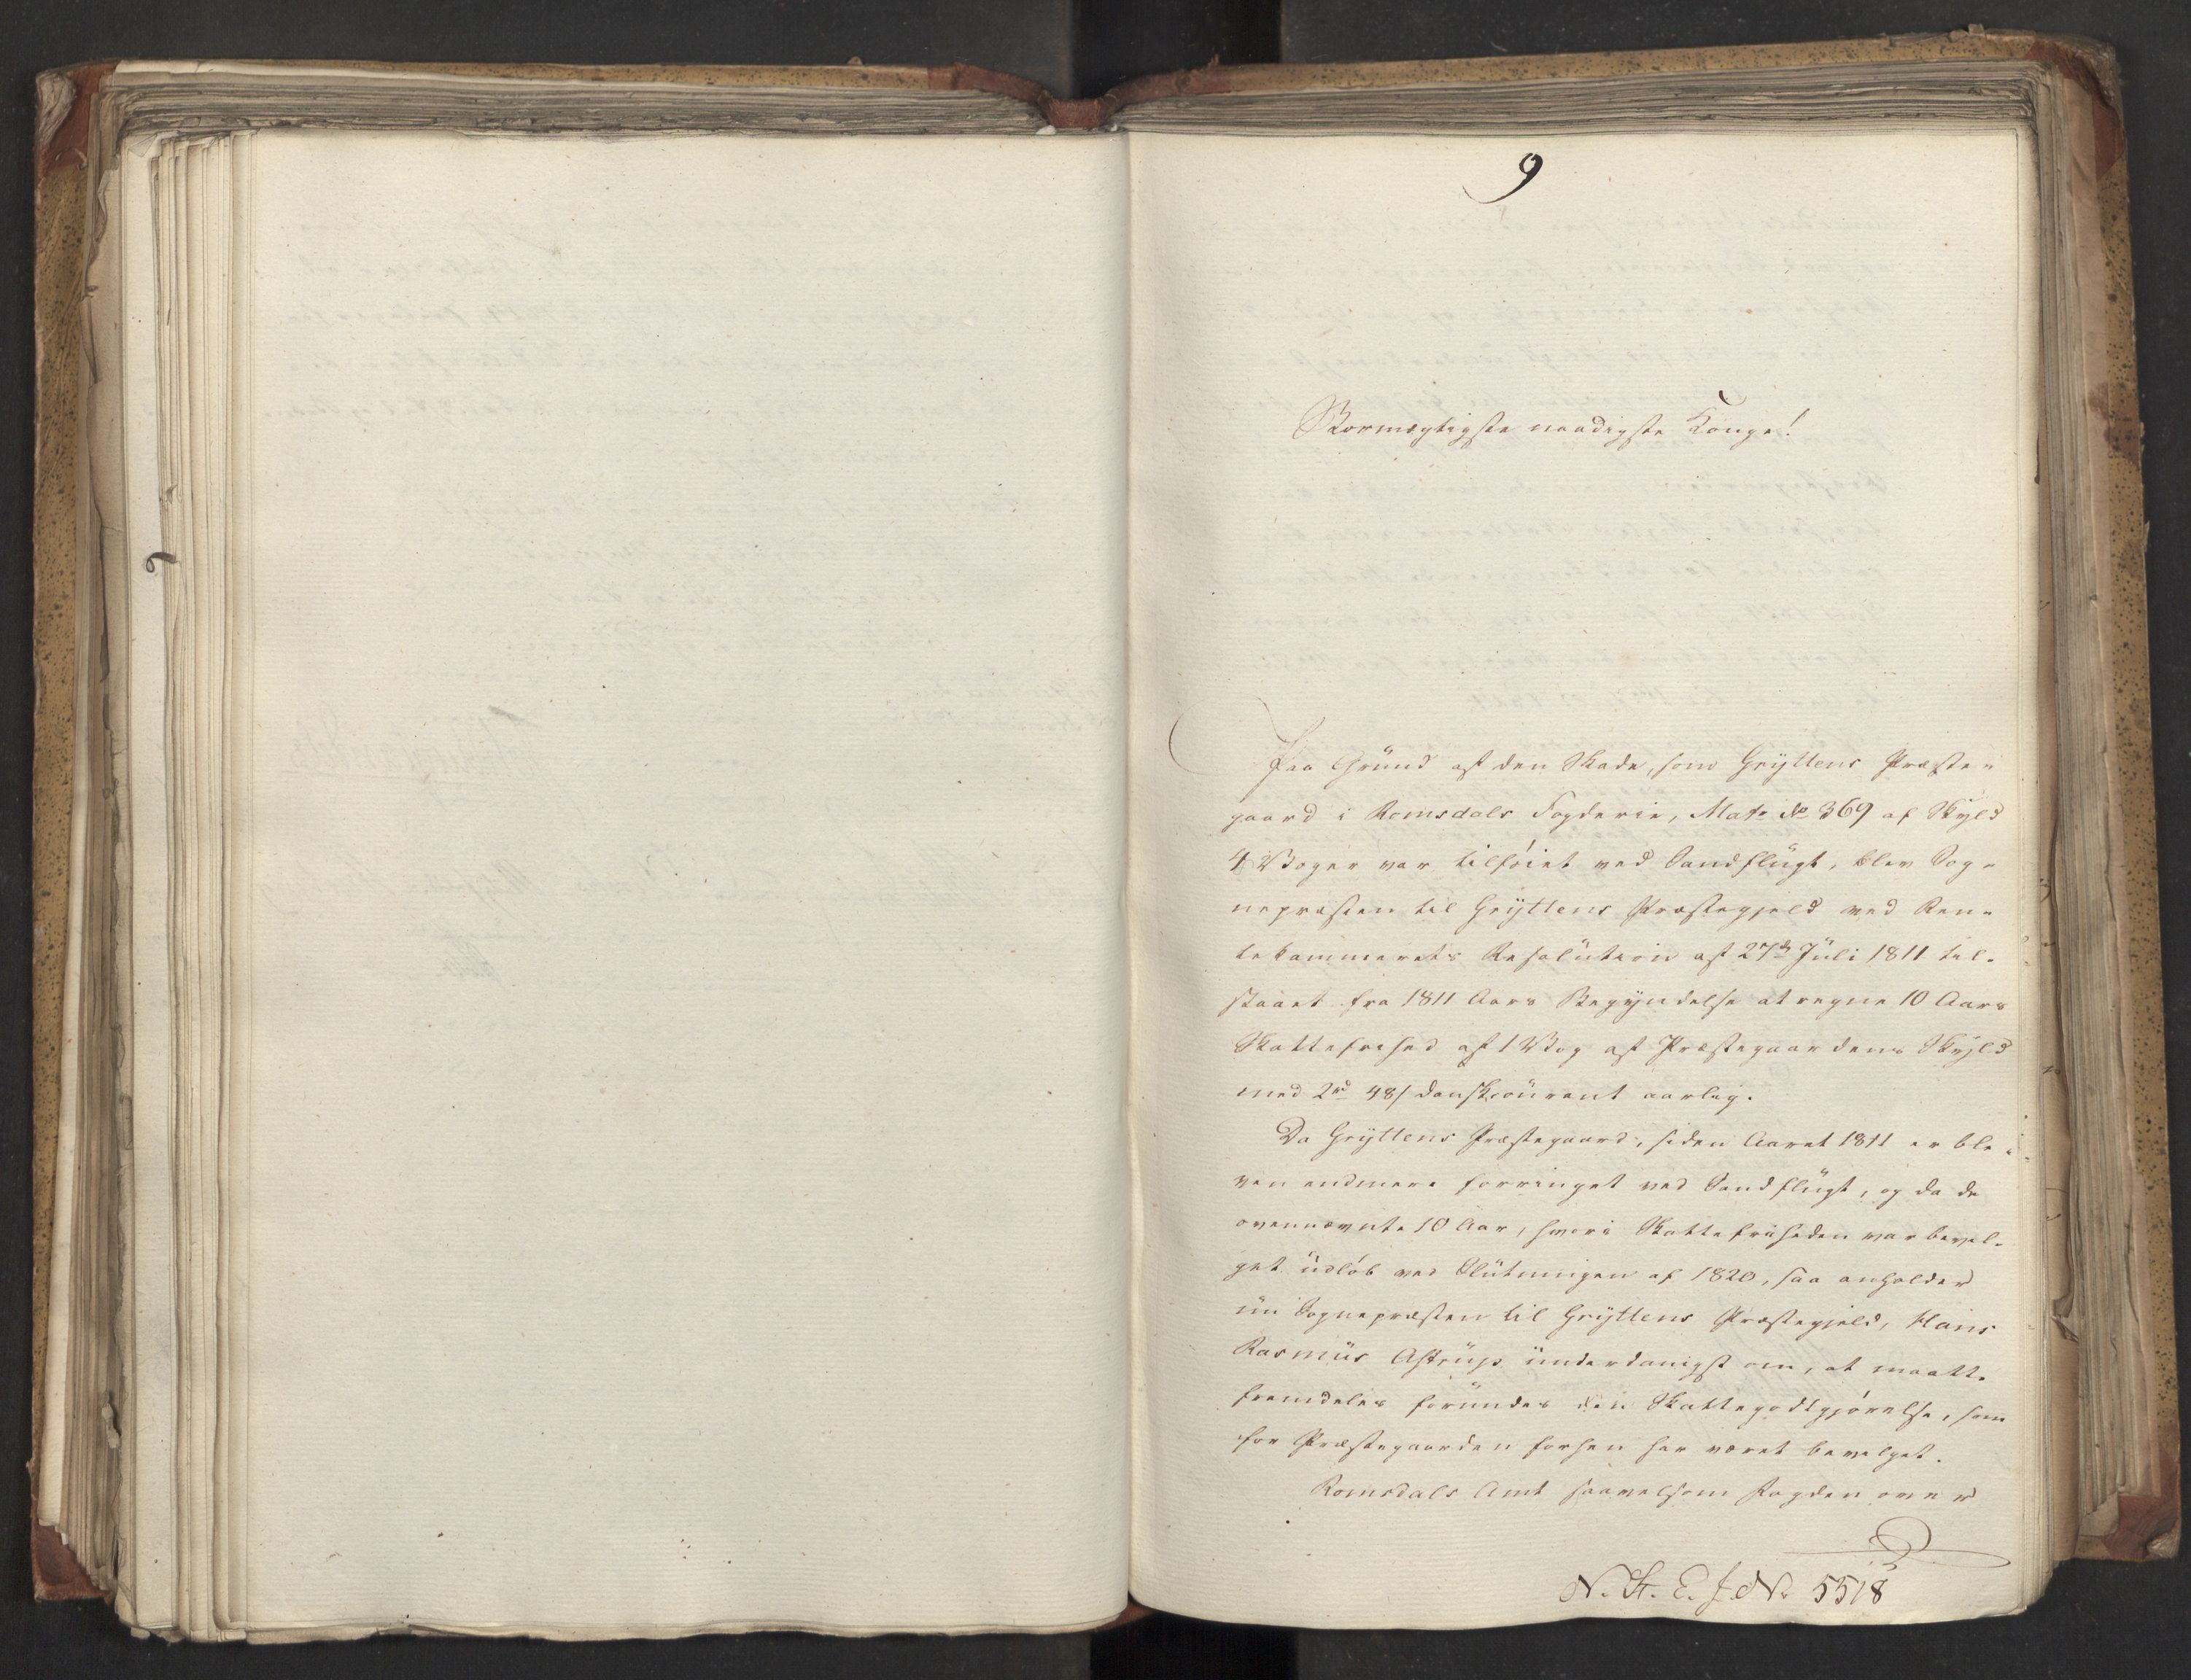 9
Stormægtigste naadigste Konge!
Paa Grund af den Skade, som Gryttens Præste-
gaard i Romsdals Fogderie, Matr No 369 af Skyld
4 Voger var tilføiet ved Sandflugt, blev Sog-
nepræsten til Gryttens Præstegjeld ved Ren-
tekammerets Resolution af 27de Juli 1811 til-
staaet fra 1811 Aars Begyndelse at regne 10 Aars
Skattefrihed af 1 Vog af Præstegaardens Skyld
med 2rd 48s dansk courant aarlig.
Da Gryttens Præstegaard, siden Aaret 1811 er ble-
ven endmere forringet ved Sandflugt, og da de
ovennævnte 10 Aar, hvori Skattefriheden var bevil-
get udløb ved Slutningen af 1820, saa anholder
nu Sognepræsten til Gryttens Præstegjeld, Hans
Rasmus Astrup underdanigst om, at maatte
fremdeles forundes den Skattegodtgjørelse, som
for Præstegaarden forhen har været bevilget.
Romsdals Amt saavelsom Fogden over
N. St. E. J. No 5518